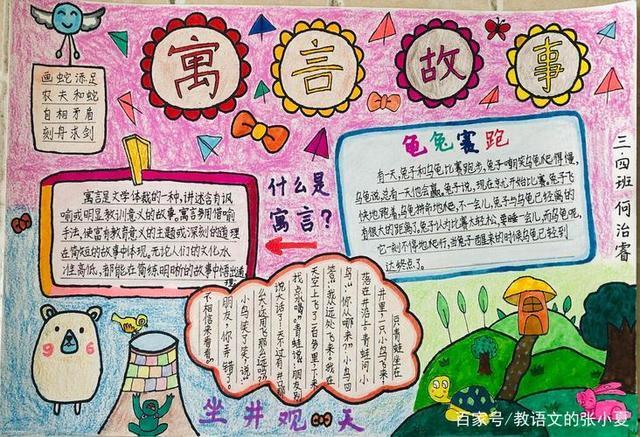 寓言故事
画蛇添足
农夫和蛇
自相矛盾
刻舟求剑
什么是
寓言?
寓言是文学体裁的一种,讲述含有讽
喻或明显教训意义的故事,寓言多用借喻
手法,使富有教育意义的主题或深刻的道理
在简短的故事中体现。无论人们的文化水
准高低,都能在简练明晰的故事中悟出道理。
龟兔赛跑
有一天,兔子和乌龟比赛跑步,兔子嘲笑乌龟爬得慢,
乌龟说,总有一天他会赢。兔子说,现在就开始比赛。兔子飞
快地跑着,乌龟拼命地爬,不一会儿,兔子与乌龟已经离的
有很大的距离了。兔子认为比赛太轻松,要睡一会儿,而乌龟呢,
它一刻不停地爬行,当兔子醒来的时候乌龟已经到
达终点了。
三.四班 何治睿
一只青蛙坐在
井里,一只小鸟飞来,
落在井沿上。青蛙问小
鸟:“你从哪来?”小鸟回
答:“我从远处飞来。我在
天空上飞了一百多里,下来
找点水喝。”青蛙说:“朋友,别
说大话了!天不过有井口那
么大,还用飞那么远吗?”
小鸟笑了笑,说:“
朋友,你弄错了。
不相信来看看。”
坐井观天
百家号/教语文的张小夏